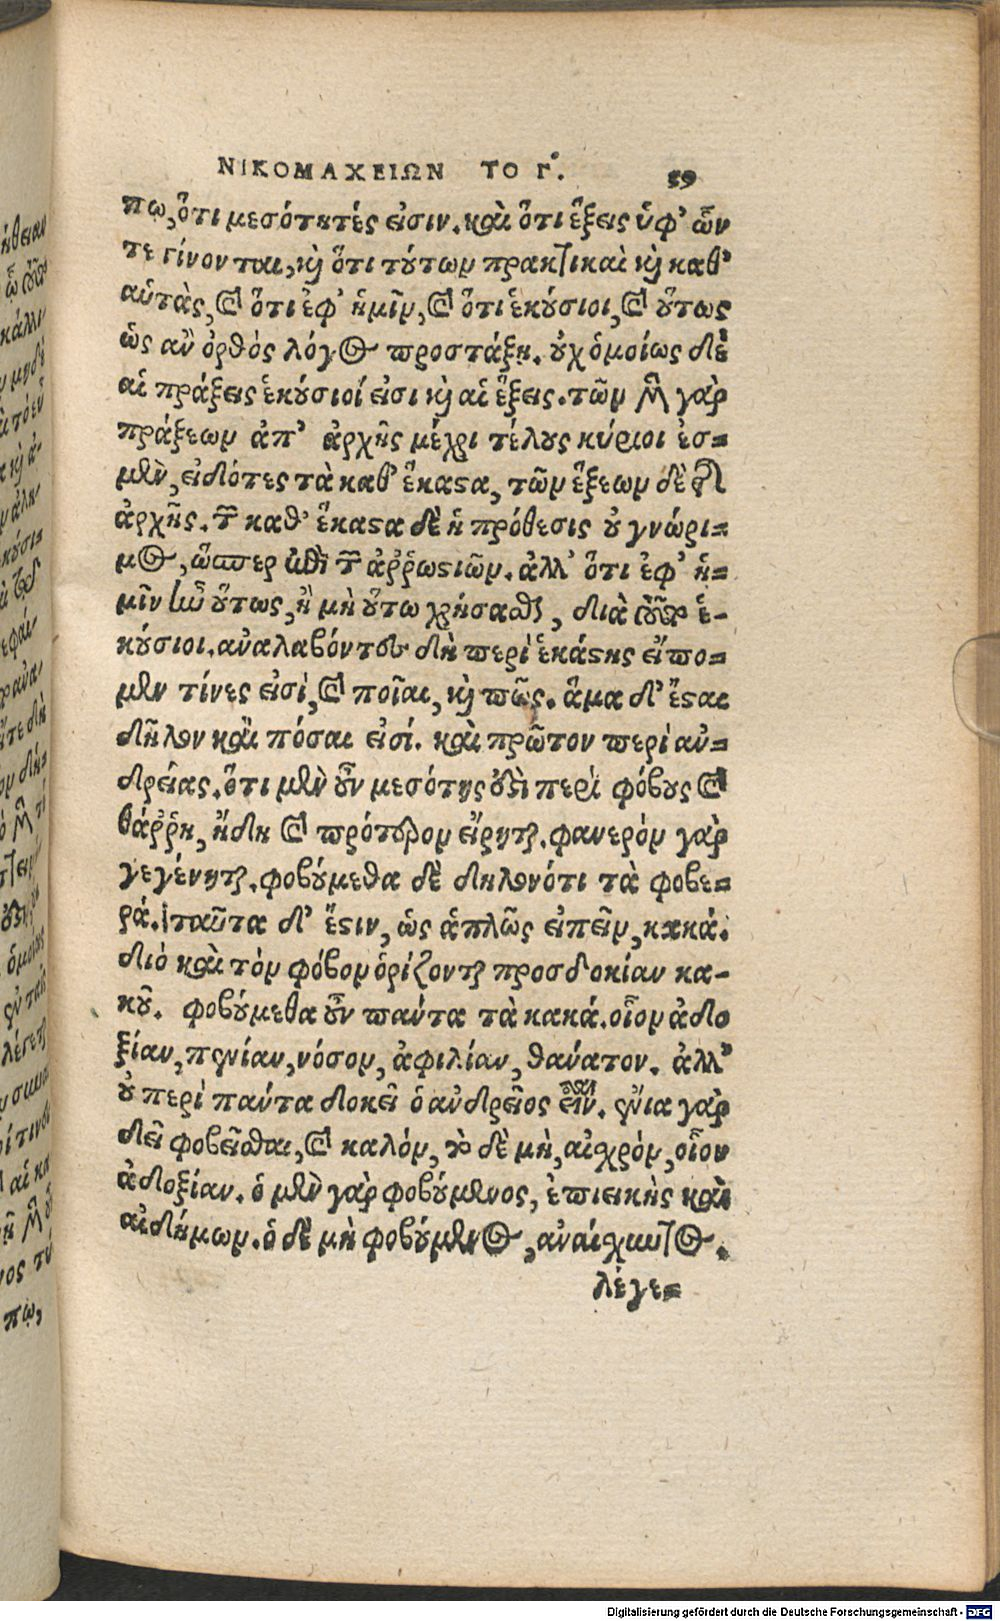 ΝΙΚΟΜΑΧΕΙΩΝ ΤΟ Γ΄. 59
πῳ, ὅτι μεσότητές εἰσιν. καὶ ὅτι ἕξεις ὑφ' ὧν
τε γίνονται, καὶ ὅτι τούτων πρακτικαὶ καὶ καθ'
αὑτὰς, καὶ ὅτι ἐφ' ἡμῖν, καὶ ὅτι ἑκούσιοι, καὶ οὕτως
ὡς ἂν ὀρθὸς λόγος προστάξῃ. οὐχ ὁμοίως δὲ
αἱ πράξεις ἑκούσιοί εἰσι καὶ αἱ ἕξεις. τῶν μὲν γὰρ
πράξεων ἀπ' ἀρχῆς μέχρι τέλους κύριοι ἐσ=
μὲν, εἰδότες τὰ καθ' ἕκαστα, τῶν ἕξεων δὲ τῆς
ἀρχῆς. τῶν καθ' ἕκαστα δὲ ἡ πρόθεσις οὐ γνώρι=
μος, ὥσπερ ἐπὶ τῶν ἀῤῥωστιῶν. ἀλλ' ὅτι ἐφ' ἡ=
μῖν ἦν οὕτως, ἢ μὴ οὕτω χρήσασθαι, διὰ τοῦτο ἑ-
κούσιοι. ἀναλαβόντες δὴ περὶ ἑκάστης εἴπο=
μεν τίνες εἰσὶ, καὶ ποῖαι, καὶ πῶς. ἅμα δ' ἔσται
δῆλον καὶ πόσαι εἰσί. καὶ πρῶτον περὶ ἀν=
δρείας. ὅτι μὲν οὖν μεσότης ἐστὶ περὶ φόβους καὶ
θάῤῥη, ἤδη καὶ πρότερον εἴρηται. φανερὸν γὰρ
γεγένηται. φοβούμεθα δὲ δηλονότι τὰ φοβε=
ρά. ταῦτα δ' ἔστιν, ὡς ἁπλῶς εἰπεῖν, κακά.
διὸ καὶ τὸν φόβον ὁρίζονται προσδοκίαν κα-
κοῦ. φοβούμεθα οὖν πάντα τὰ κακά. οἷον ἀδο
ξίαν, πενίαν, νόσον, ἀφιλίαν, θάνατον. ἀλλ'
οὐ περὶ πάντα δοκεῖ ὁ ἀνδρεῖος εἶναι. ἔνια γὰρ
δεῖ φοβεῖσθαι, καὶ καλόν, τὸ δὲ μὴ, αἰσχρόν, οἷον
ἀδοξίαν. ὁ μὲν γὰρ φοβούμενος, ἐπιεικὴς καὶ
αἰδήμων. ὁ δὲ μὴ φοβούμενος, ἀναίσχυντος.
λέγε=
Digitalisierung gefördert durch die Deutsche Forschungsgemeinschaft - DFG